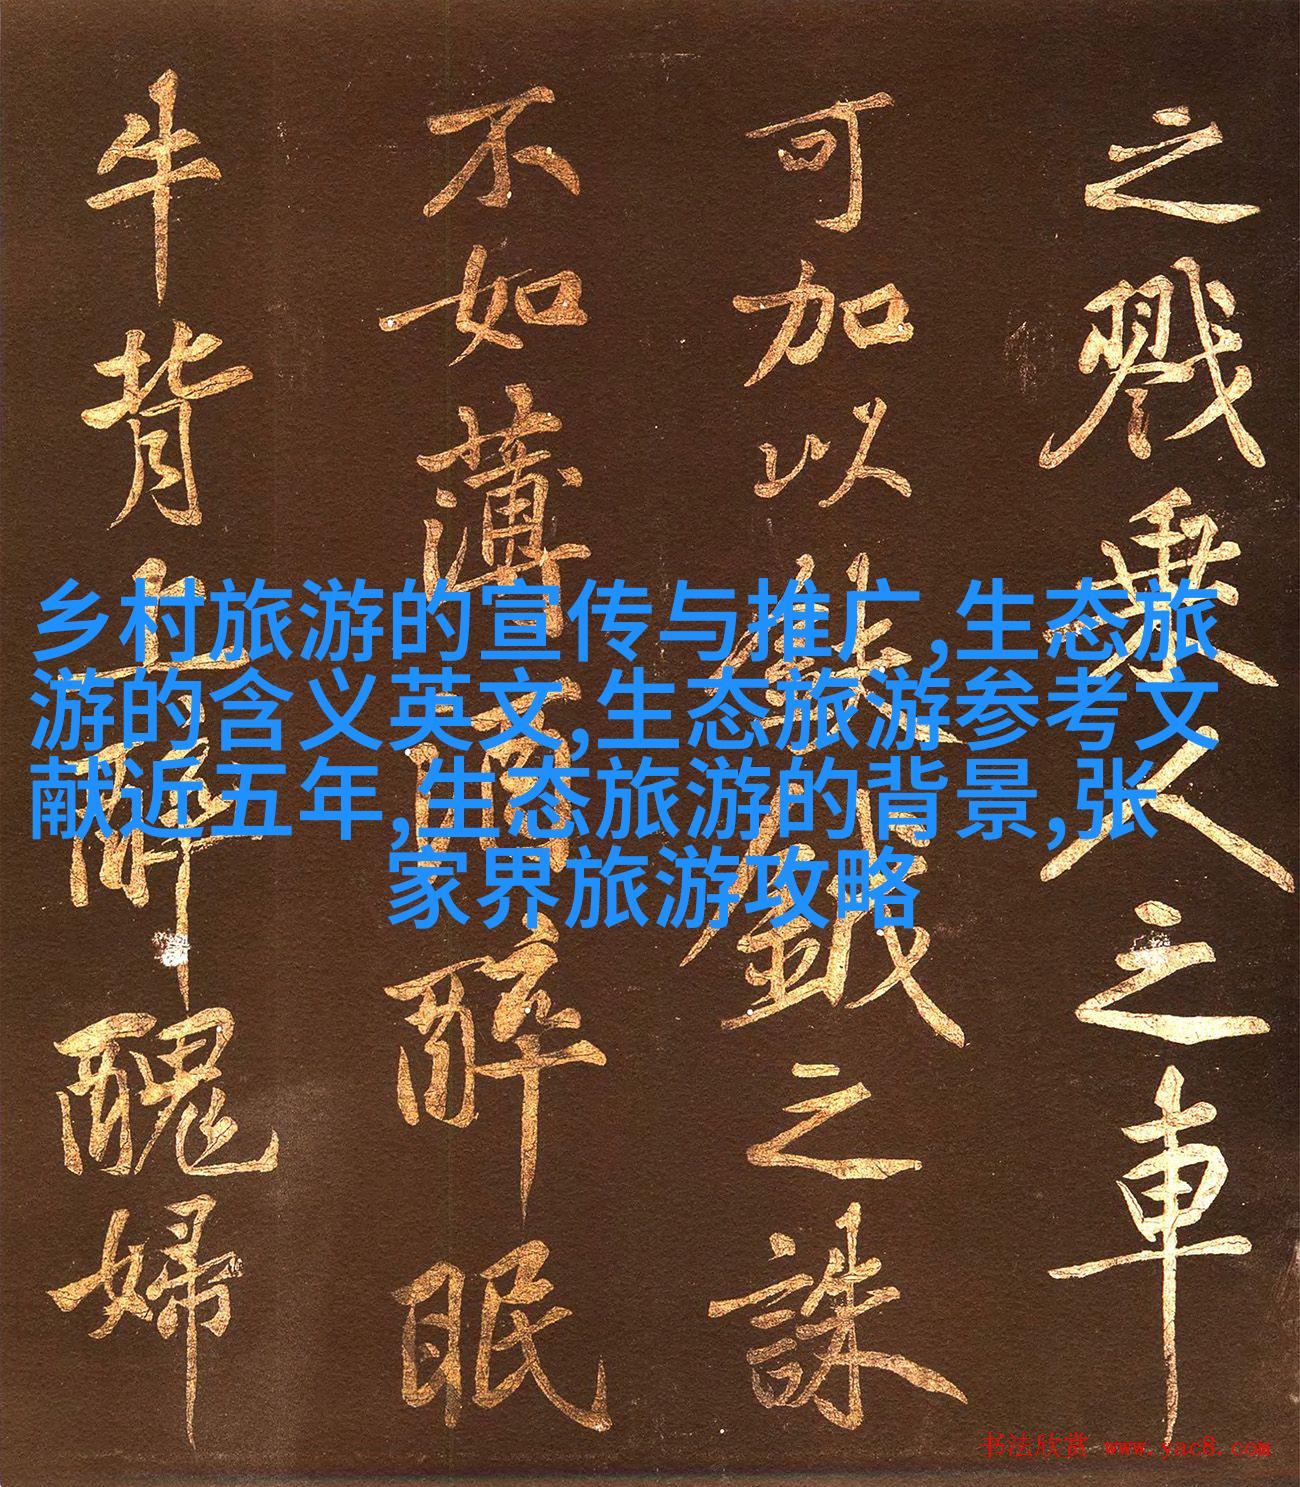 之戮乘人之車
可加以鈇鉞之誅
不如薄酒醉眠
牛背上醉醜婦
乡村旅游的宣传与推广,生态旅
游的含义英文,生态旅游参考文
献近五年,生态旅游的背景,张
家界旅游攻略
书法欣赏 www.yac8.com